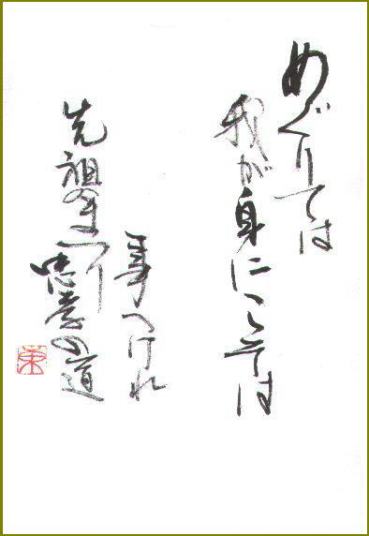 めぐりては
我が身にこそは
事へけれ
先祖のまつり
忠孝の道
東